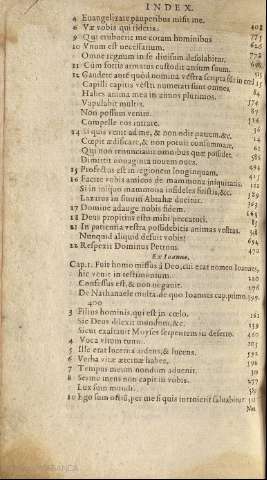 INDEX.
4 Euangelizare pauperibus misit me.
6 Væ vobis qui ridetis. 408
9 Qui erubuerit me coram hominibus 775
10 Vnum est necessarium. 626
Omne regnum in se diuisum desolabitur. 772
11 Cùm fortis armatus custodit atrium suum.
12 Gaudete autē quòd nomina vestra scripta sūt in cœl
Capilli capitis vestri numerati sunt omnes.
Habes anima mea in annos plurimos.
Vapulabit multis. 574
Non possum venire.
Compelle eos intrare.
14 Si quis venit ad me, & non odit patrem, &c.
Cœpit ædificare, & non potuit consummare.
Qui non renunciauerit omnibus quæ possidet.
Dimittit nonaginta nouem oues.
15 Profectus est in regionem longinquam.
16 Facite vobis amicos de mammona iniquitatis.
Si in iniquo mammona infideles fuistis, &c.
Lazarus in sinum Abrahæ ducitur.
17 Domine adauge nobis fidem.
18 Deus propitius esto mihi peccatori.
21 In patientia vestra possidebitis animas vestras.
Nunquid aliquid defuit vobis?
22 Respexit Dominus Petrum.
Ex Ioanne.
Cap. 1. Fuit homo missus à Deo, cui erat nomen Ioannes,
hic venit in testimonium.
Confessus est, & non negauit.
De Nathanaele multa. de quo Ioannes cap. primo.
400
3 Filius hominis, qui est in cœlo.
Sic Deus dilexit mundum, &c.
Sicut exaltauit Moyses serpentem in deserto.
4 Voca virum tuum.
5 Ille erat lucerna ardens, & lucens.
6 Verba vitæ æternæ habes.
7 Tempus meum nondum aduenit.
8 Sermo meus non capit in vobis. 277
Lux sum mundi.
10 Ego sum ostiū, per me si quis introierit saluabitur.